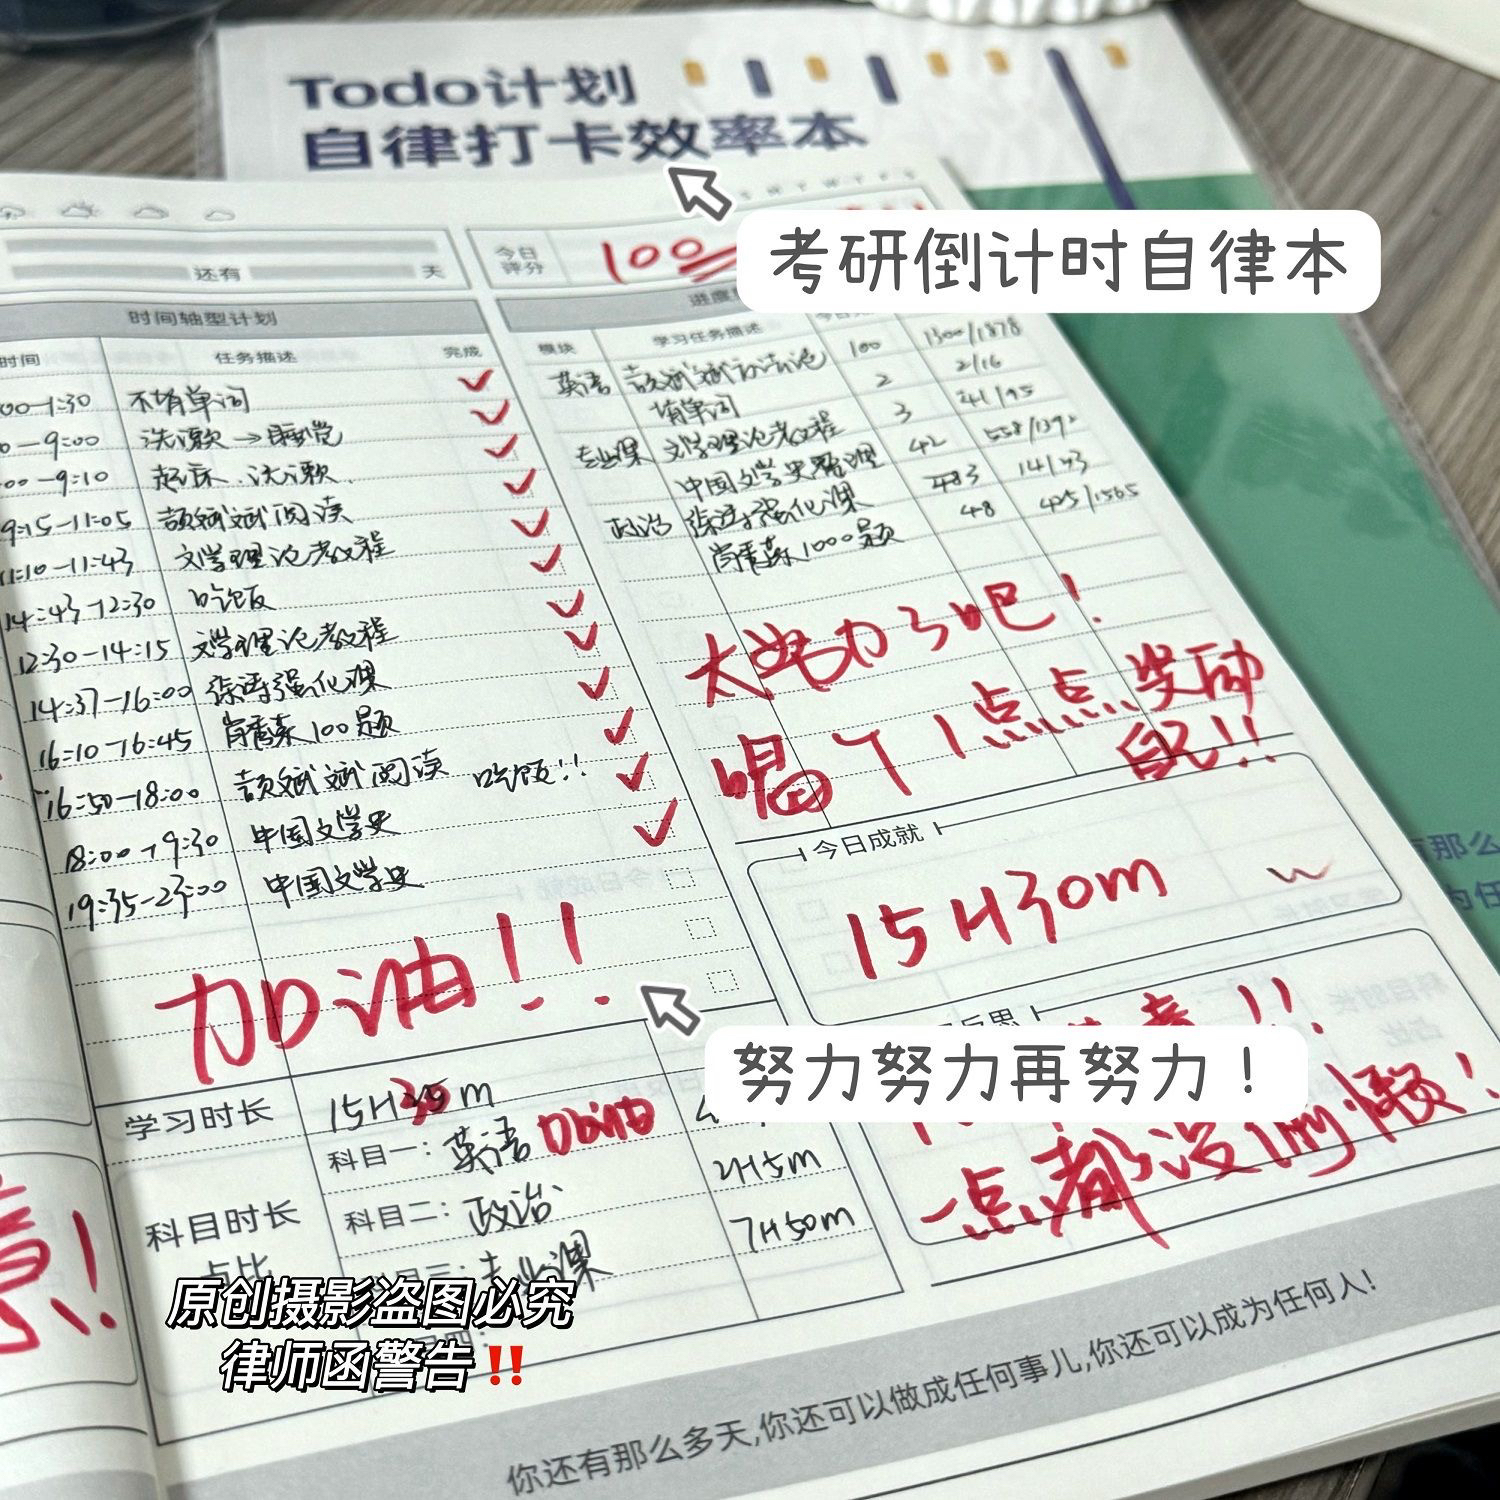 Todo计划
自律打卡效率本
考研倒计时自律本
今日
评分
100
还有 天
时间轴型计划
时间 任务描述 完成
00-1:30 不背单词
0-9:00 洗漱→睡觉
00-9:10 起床.洗漱.
9:15-11:05 颉斌斌阅读
11:10-11:43 文学理论教程
14:43-12:30 吃饭
12:30-14:15 文学理论教程
14:37-16:00 徐涛强化课
16:10-16:45 肖秀荣100题
16:50-18:00 颉斌斌阅读 吃饭!!
18:00-19:30 中国文学史
19:35-23:00 中国文学史
加油!!
模块 学习任务描述
英语 颉斌斌 100 1300/1878
背单词 2 2/16
专业课 文学理论教程 3 41/95
中国文学史整理 42 558/1392
政治 徐涛强化课 14/43
肖秀荣1000题 48 425/1565
太魅力了吧!
喝了1点点奖励
自己!!
今日成就
15H30m
反思
!!
一点都没偷懒!
努力努力再努力!
学习时长 15H30m
科目时长
占比
科目一: 英语 加油
科目二: 政治 2H15m
科目三: 专业课 7H50m
原创摄影盗图必究
律师函警告‼️
你还有那么多天,你还可以做成任何事儿,你还可以成为任何人!